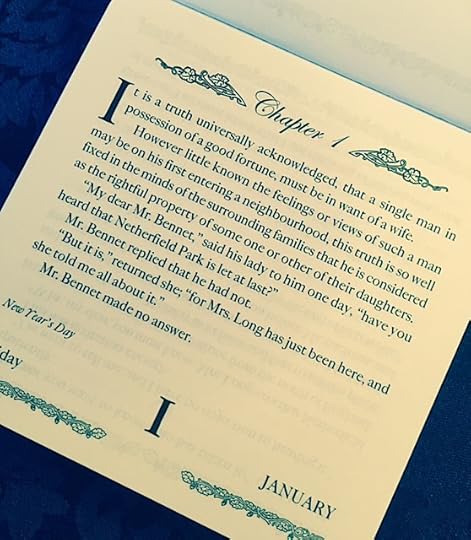 Chapter 1
It is a truth universally acknowledged, that a single man in
possession of a good fortune, must be in want of a wife.
However little known the feelings or views of such a man
may be on his first entering a neighbourhood, this truth is so well
fixed in the minds of the surrounding families that he is considered
as the rightful property of some one or other of their daughters.
"My dear Mr. Bennet," said his lady to him one day, "have you
heard that Netherfield Park is let at last?"
Mr. Bennet replied that he had not.
"But it is," returned she; "for Mrs. Long has just been here, and
she told me all about it."
Mr. Bennet made no answer.
New Year's Day
day
I
JANUARY